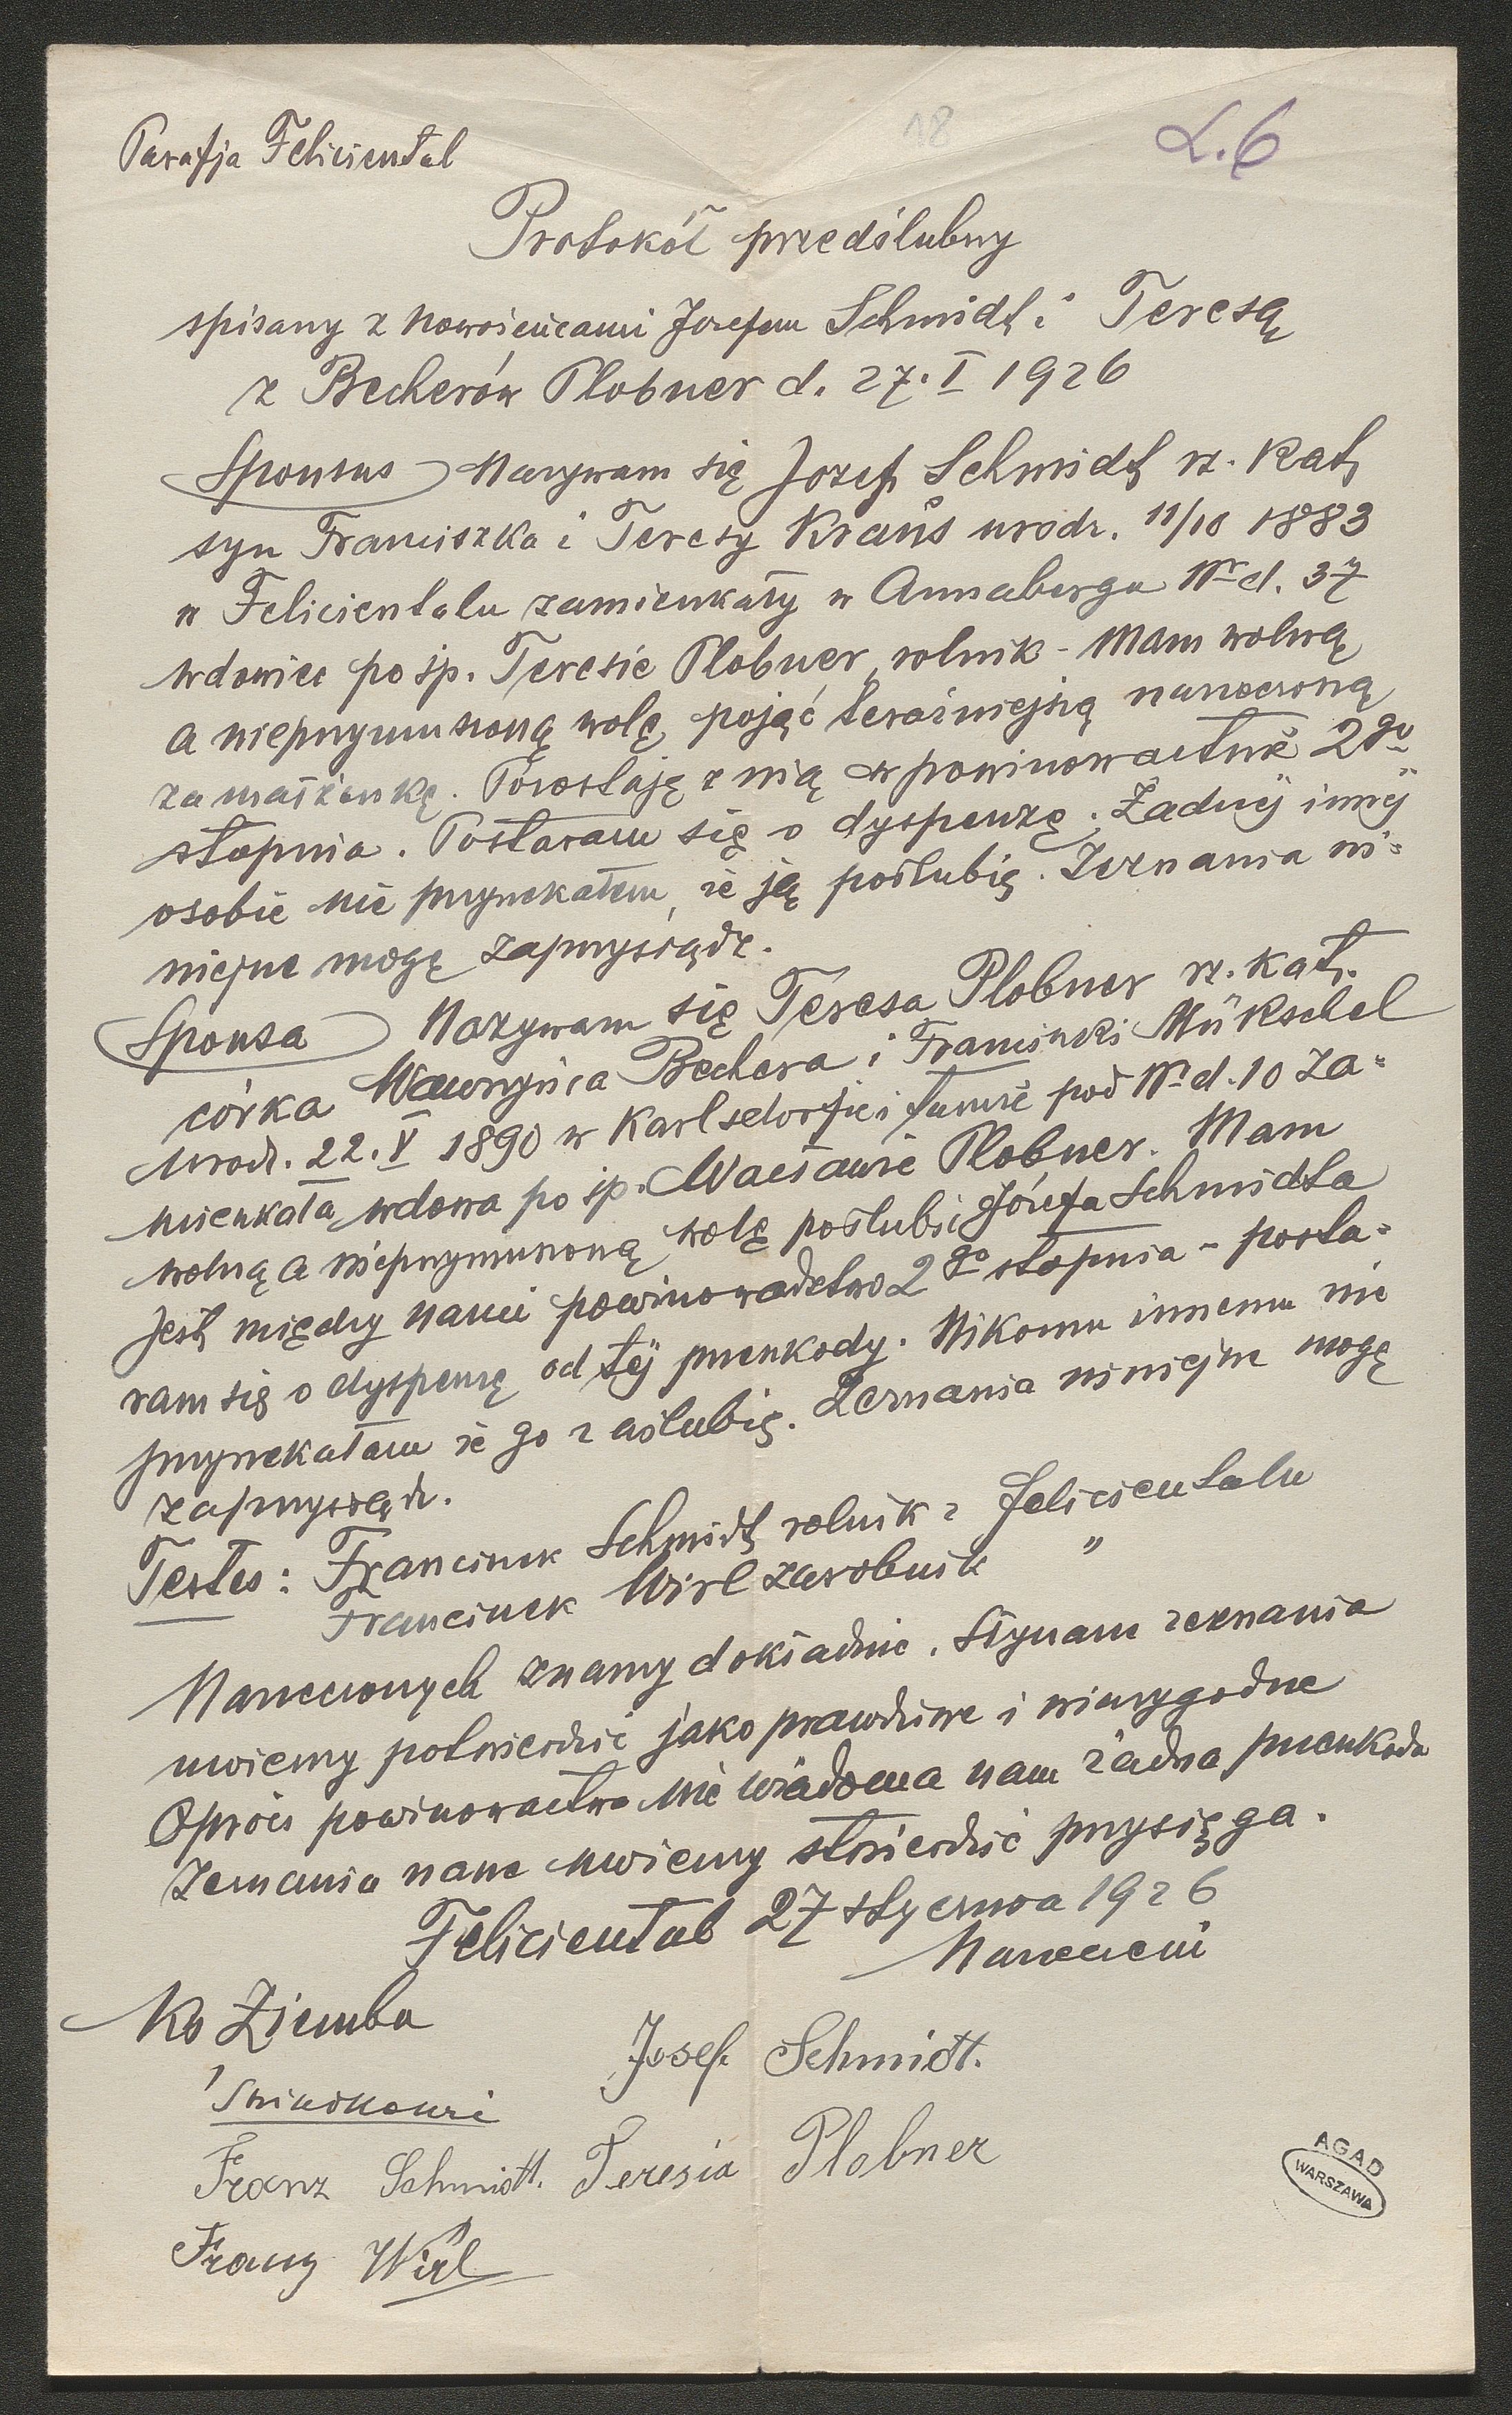 Parafja Feliciental
18
L. 6
Protokół przedślubny
spisany z nowożeńcami Józefem Schmidt i Teresą
z Becherów Plobner d. 27. I 1926
Sponsus Nazywam się Jozef Schmidt rz. kat,
syn Franciszka i Teresy Kraus urodz. 11/10 1883
w Felicientalu zamieszkały w Annabergu Nr d. 37
wdowiec po śp. Teresie Plobner, rolnik - Mam wolną
a nieprzymuszoną wolę pojąć teraźniejszą narzeczoną
za małżonkę. Pozostaję z nią w powinowactwie 2go
stopnia. Postaram się o dyspenzę. Żadnej innej
osobie nie przyrzekałem, że ją poślubię. Zeznania ni=
niejsze mogę zaprzysiądz.
Sponsa Nazywam się Teresa Plobner rz. kat.
córka Wawrzyńca Bechera i Franciszki Mükschel
urodz. 22. V 1890 w Karlsdorfie i tamże pod Nr d. 10 za=
mieszkała, wdowa po śp. Wacławie Plobner. Mam
wolną a nieprzymuszoną wolę poślubić Józefa Schmidta
Jest między nami powinowadctwo 2go stopnia - posta=
ram się o dyspenzę od tej przeszkody. Nikomu innemu nie
przyrzekałam że go zaślubię. Zeznania niniejsze mogę
zaprzysiądz.
Testes: Franciszek Schmidt rolnik z Felicientalu
Franciszek Wirl zarobnik "
Narzeczonych znamy dokładnie. Słyszane zeznania
możemy potwierdzić jako prawdziwe i wiarygodne
Oprócz powinowactwa nie wiadoma nam żadna przeszkoda
Zeznania nasze możemy stwierdzić przysięga.
Feliciental 27 stycznia 1926
Narzeczeni
Ks Ziemba
Josef Schmidt.
Świadkowie
Franz Schmidt. Teresia Plobner
Franz Wirl
AGAD
WARSZAWA